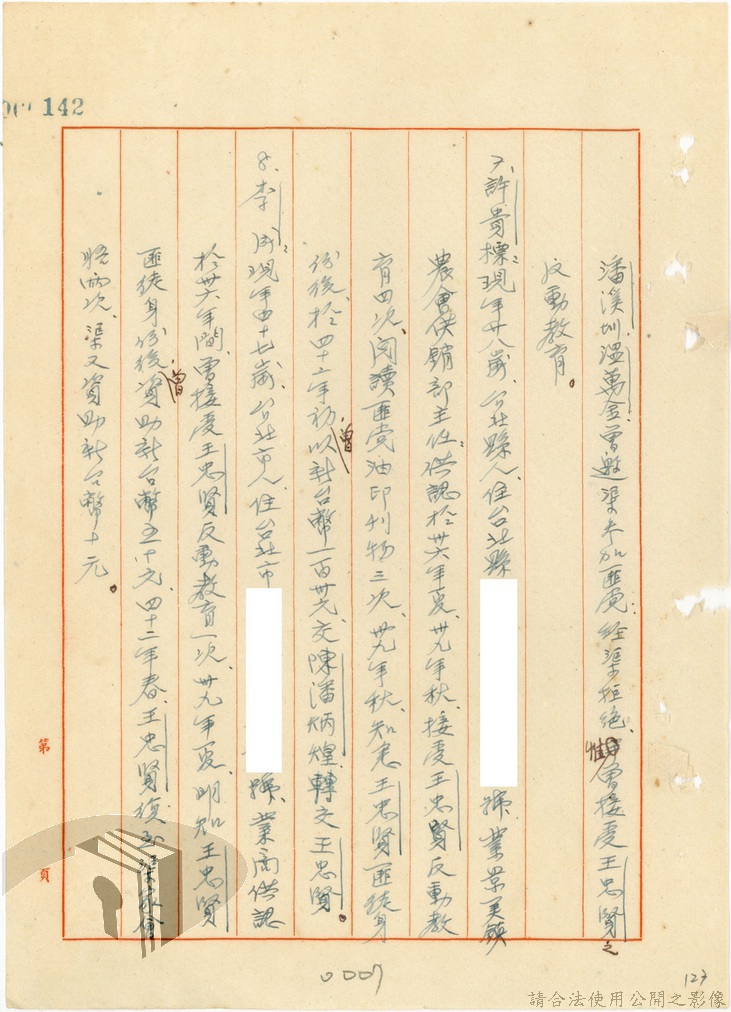 142
潘溪圳溫萬金曾邀渠參加匪黨、經渠拒絕、惟曾接受王忠賢之
反動教育。
7、許貴標、現年廿八歲、台北縣人、住台北縣 號、業景美鎮
農會供銷部主任、供認於卅六年夏、卅九年秋、接受王忠賢反動教
育四次、閱讀匪黨油印刊物三次、卅九年秋、知悉王忠賢匪徒身
份後、於四十二年初、曾以新台幣一百卅元、交陳潘炳煌、轉交王忠賢。
8、李 現年四十七歲、台北市人、住台北市 號、業商、供認
於卅六年間、曾接受王忠賢反動教育一次、卅九年夏、明知王忠賢
匪徒身份後、曾資助新台幣五十元、四十二年春、王忠賢復至渠家會
晤兩次、渠又資助新台幣十元。
第 頁
0007
127
請合法使用公開之影像